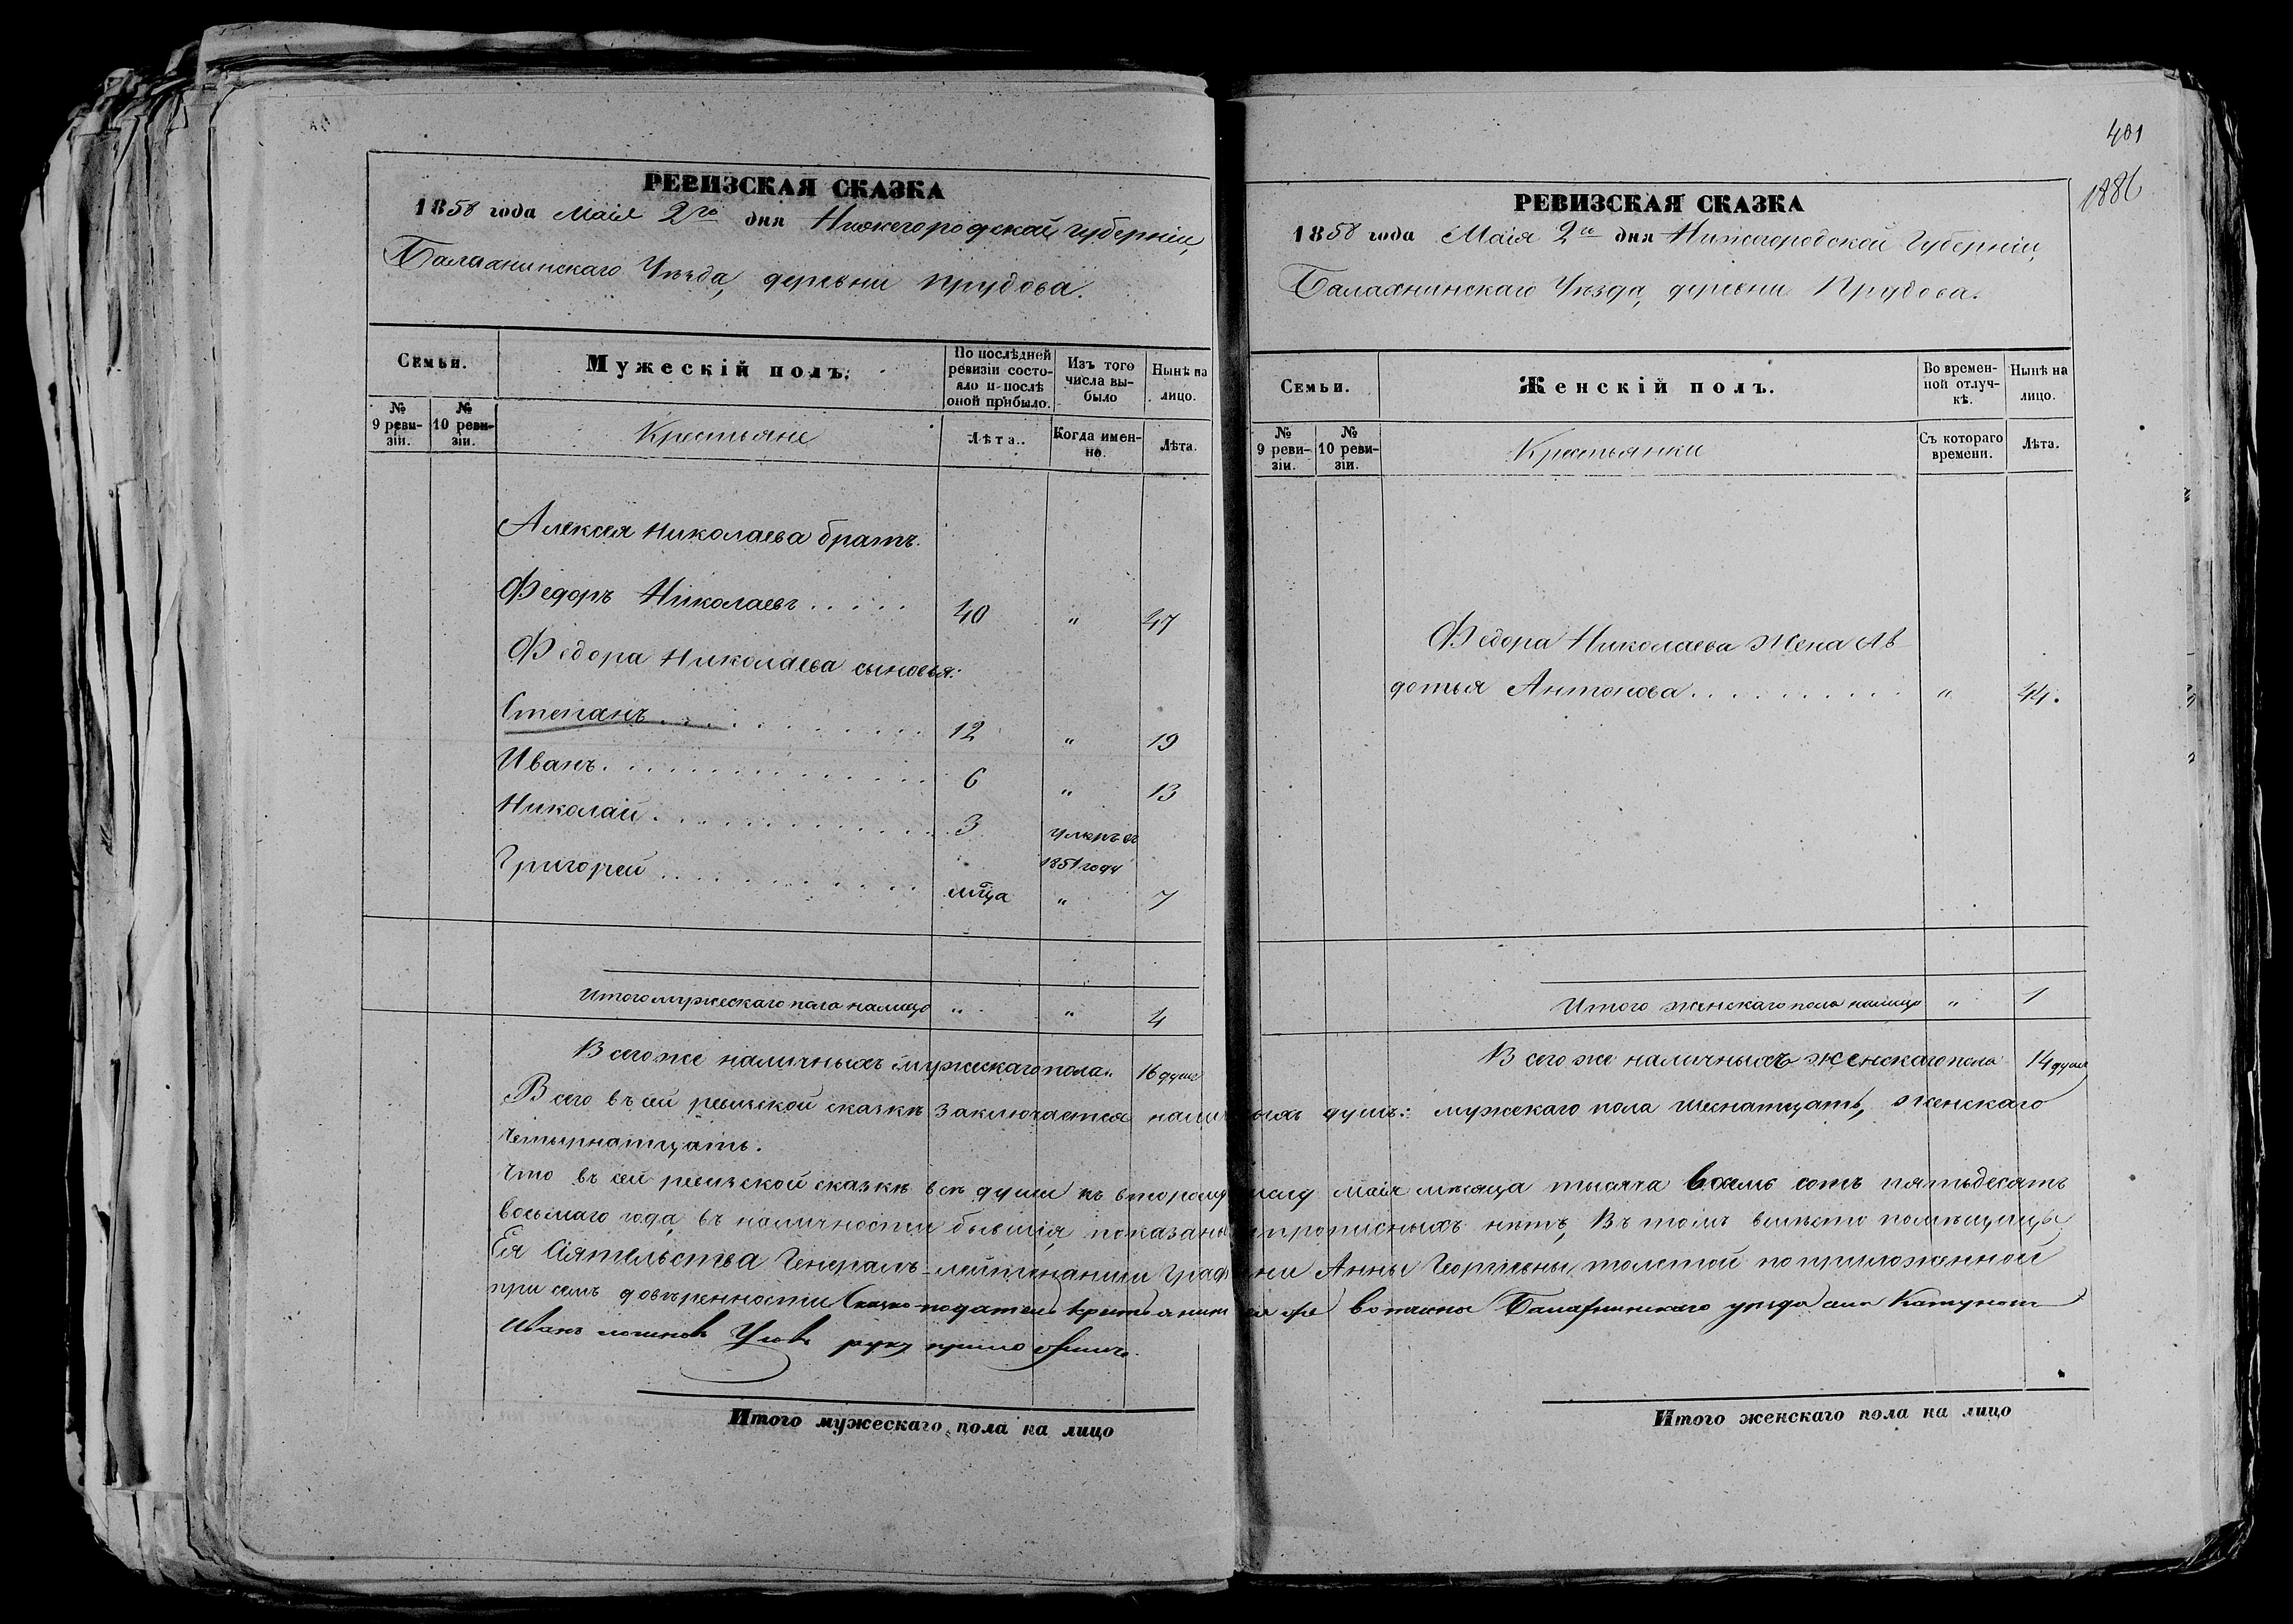 РЕВИЗСКАЯ СКАЗКА
1858 года Маія 2го дня Нижегородской губерніи,
Балахнинскаго Уѣзда, деревни Прудова.
Семьи.
Мужескій полъ.
По послѣдней ревизіи состояло и послѣ оной прибыло.
Изъ того числа выбыло
Нынѣ на лицо.
№ 9 ревизіи.
№ 10 ревизіи.
Крестьяне
Лѣта.
Когда именно.
Лѣта.
Алексея Николаева братъ.
Федоръ Николаевъ . . . . . 40 " 47
Федора Николаева сыновья:
Степанъ . . . . . . . . . . 12 " 19
Иванъ . . . . . . . . . . . . 6 " 13
Николай . . . . . . . . . . . 3 умеръ въ
1851 году
Григорей . . . . . . . . . . мца " 7
Итого мужескаго пола налицо " " 4
Всего же наличныхъ мужескаго пола. 16 душъ
401
1886
РЕВИЗСКАЯ СКАЗКА
1858 года Маія 2го дня Нижегородской Губерніи,
Балахнинскаго Уѣзда, деревни Прудова.
Семьи.
Женскій полъ.
Во временной отлучкѣ.
Нынѣ на лицо.
№ 9 ревизіи.
№ 10 ревизіи.
Крестьянки
Съ котораго времени.
Лѣта.
Федора Николаева Жена Ав
дотья Антонова . . . . . . . . . . " 44.
Итого женскаго пола налицо " 1
Всего же наличныхъ женскаго пола 14 душъ
Всего въ сей ревизской сказкѣ заключается наличныхъ душъ: мужскаго пола шеснатцать, женскаго
четырнатцать.
Что въ сей ревизской сказкѣ всѣ души къ второму числу Маія мѣсяца тысяча восемь сотъ пятьдесятъ
восьмаго года въ наличности бывшія, показаны и прописныхъ нѣтъ, Въ томъ вместо помѣщицы,
Ея Сіятельства Генералъ-лейтенантши Графини Анны Георгіевны толстой по приложенной
при семъ довѣренности Сказко-податель крестьянинъ ея же вотчины Балахнинскаго уезда села Катунокъ
Иванъ руку приложилъ.
Итого мужескаго пола на лицо
Итого женскаго пола на лицо